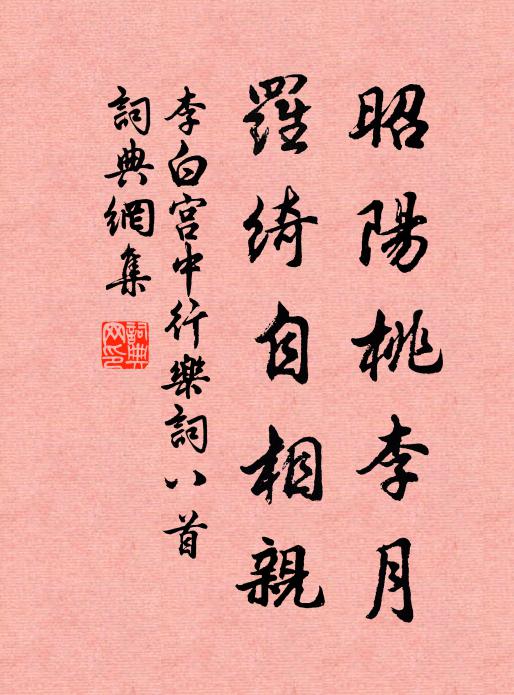 昭陽桃李月
羅綺自相親
李白宮中行樂詞八首
詞典網集
詞典网印